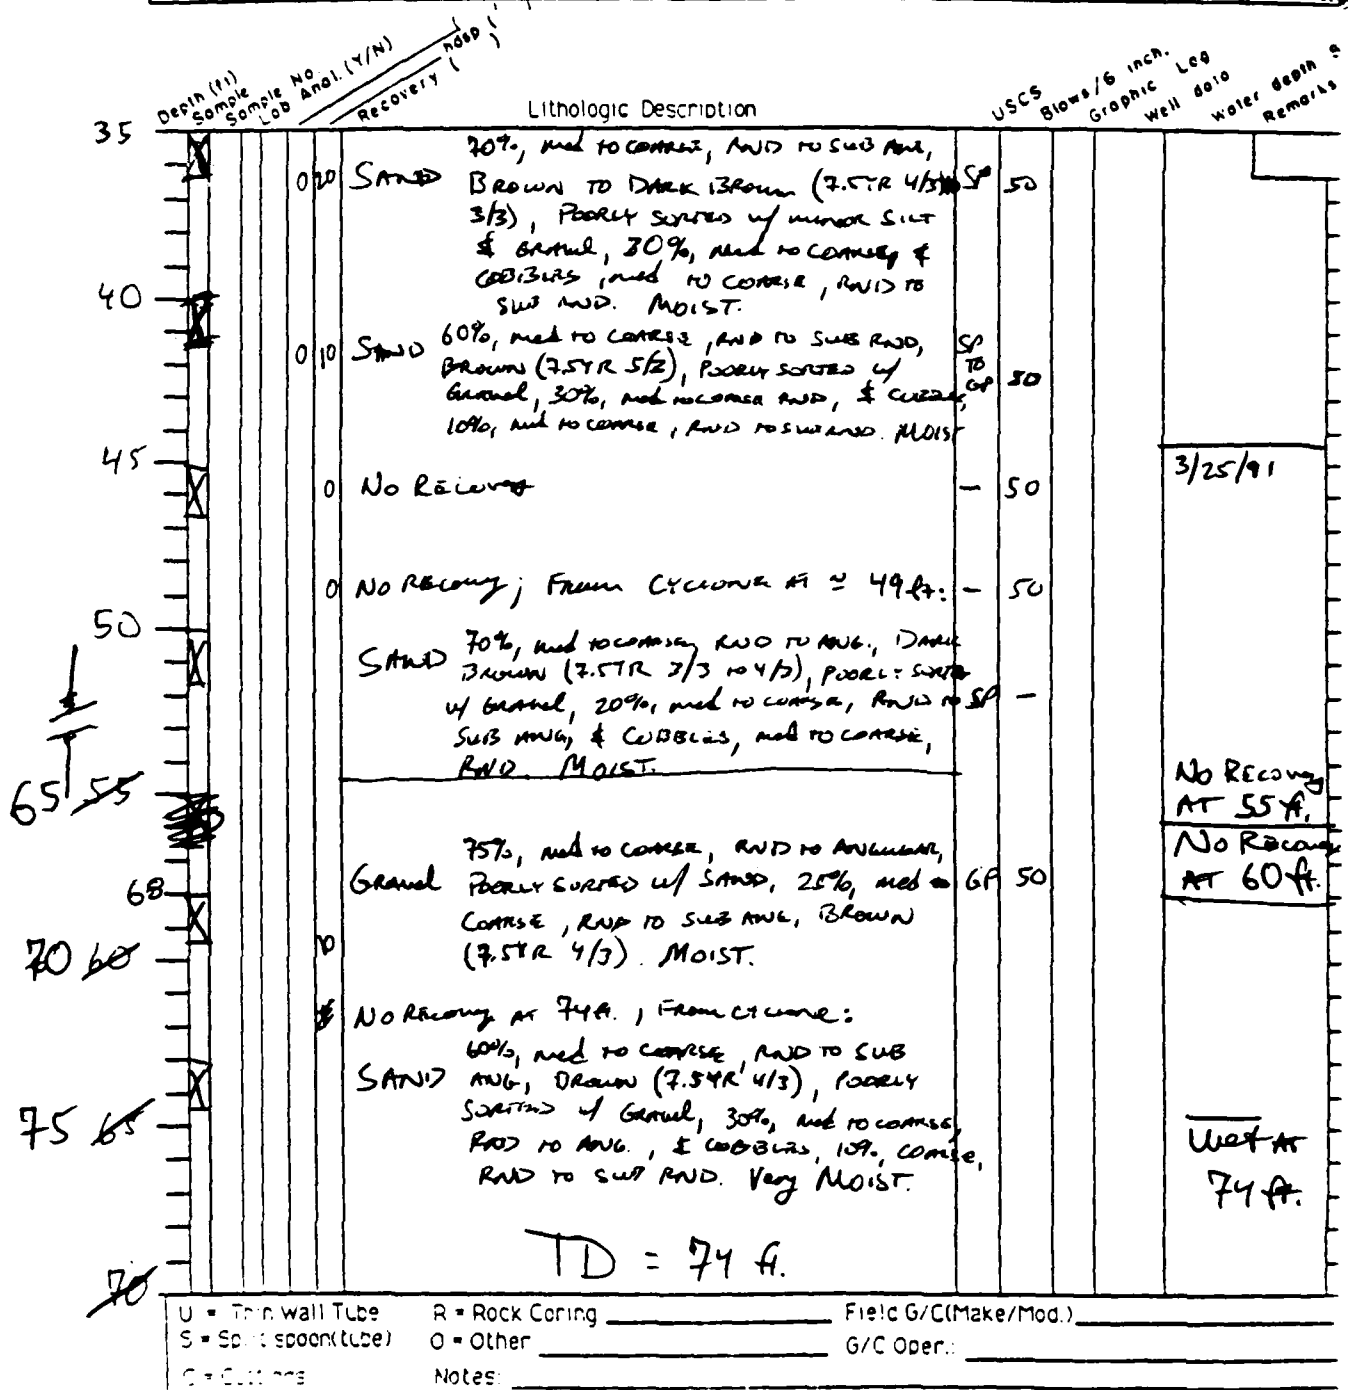 Depth (ft)
Sample
Sample No.
Lab Anal. (Y/N)
Recovery (
Lithologic Description
USCS
Blows/6 inch.
Graphic Log
Well data
Water depth
Remarks
35
70%, med TO COARSE, RND TO SUB ANG,
0 20 SAND BROWN TO DARK BROWN (7.5YR 4/3 SP 50
3/3), POORLY SORTED w/ MINOR SILT
& GRAVEL, 30%, med TO COARSE, &
COBBLES, med TO COARSE, RND TO
40
SUB RND. MOIST.
0 10 SAND 60%, med TO COARSE, RND TO SUB RND, SP
BROWN (7.5YR 5/2), POORLY SORTED w/ TO
GRAVEL, 30%, med TO COARSE RND, & COBBLES, GP 80
10%, med TO COARSE, RND TO SUB RND. MOIST
45
3/25/91
0 No RECOVERY - 50
0 No RECOVERY; FROM CYCLONE AT ≈ 49 ft: - 50
50
SAND 70%, med TO COARSE, RND TO ANG., DARK
BROWN (7.5YR 3/3 TO 4/3), POORLY SORTED
w/ GRAVEL, 20%, med TO COARSE, RND TO SP -
SUB ANG, & COBBLES, med TO COARSE,
RND. MOIST.
65 55
No RECOVERY
AT 55 ft.
No RECOVERY
AT 60 ft.
75%, med TO COARSE, RND TO ANGULAR,
68
GRAVEL POORLY SORTED w/ SAND, 25%, med TO GP 50
COARSE, RND TO SUB ANG, BROWN
70 60
(7.5YR 4/3). MOIST.
No RECOVERY AT 74 ft., FROM CYCLONE:
60%, med TO COARSE, RND TO SUB
SAND ANG, BROWN (7.5YR 4/3), POORLY
75 65
SORTED w/ GRAVEL, 30%, med TO COARSE,
RND TO ANG., & COBBLES, 10%, COARSE,
RND TO SUB RND. Very MOIST.
Wet AT
74 ft.
TD = 74 ft.
70
U = Thin wall Tube R = Rock Coring Field G/C(Make/Mod.)
S = Split spoon(tube) O = Other G/C Oper.:
C = Cuttings Notes: